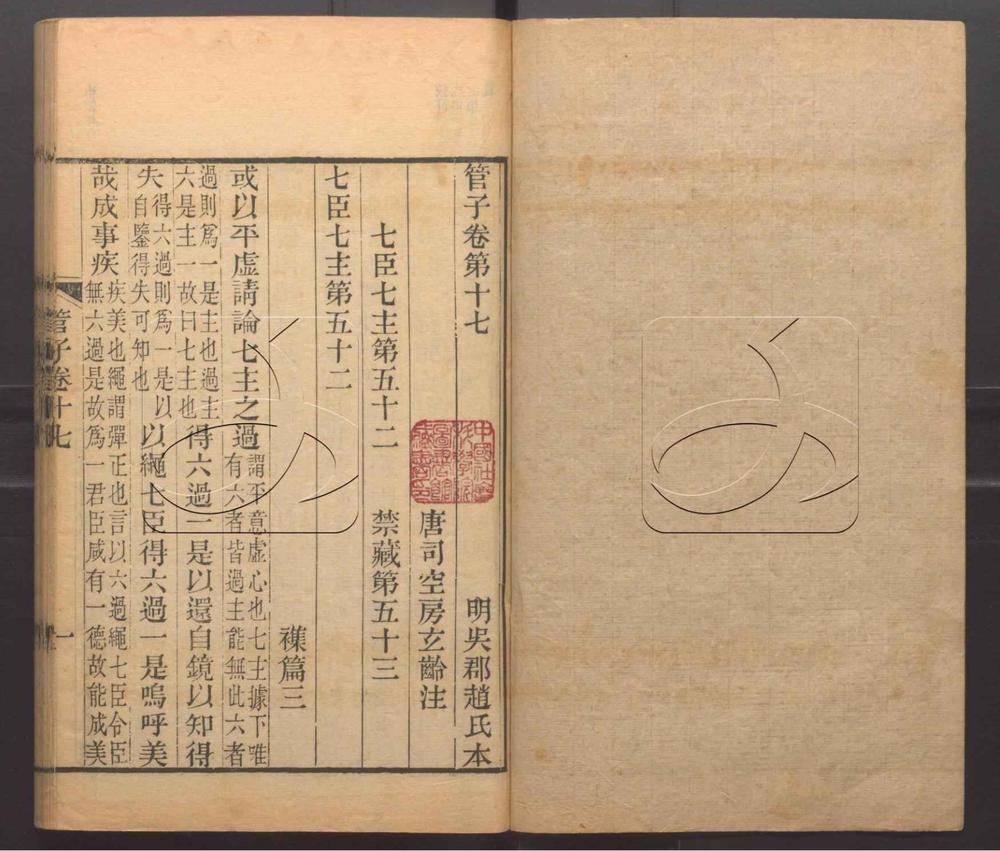 管子卷第十七 明吳郡趙氏本
唐司空房玄齡注
七臣七主第五十二 禁藏第五十三
七臣七主第五十二
襍篇三
或以平虛請論七主之過謂平意虛心也七主據下唯有六者皆過主能無此六者
過則爲一是主也過主六是主一故曰七主也得六過一是以還自鏡以知得
失得六過則爲一是以自鑒得失可知也以繩七臣得六過一是嗚呼美
哉成事疾疾美也繩謂彈正也言以六過繩七臣令臣無六過是故爲一君臣咸有一德故能成美
管子卷十七 一